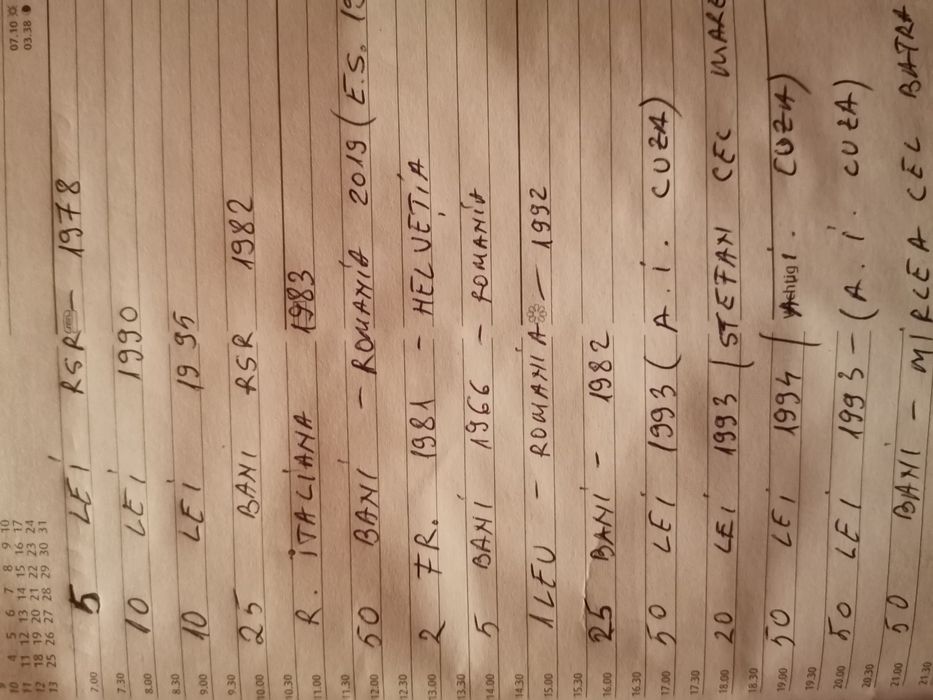 10 4 5 6 7 8 9 10 07.10
11 11 12 13 14 15 16 17 03.38
12 18 19 20 21 22 23 24
13 25 26 27 28 29 30 31
5 LEI RSR - 1978
7.00
7.30
10 LEI 1990
8.00
8.30
10 LEI 1995
9.00
9.30
25 BANI RSR 1982
10.00
10.30
R. ITALIANA 1983
11.00
11.30
50 BANI - ROMANIA 2019 (E.S.
12.00
12.30
2 FR. 1981 - HELVEȚIA
13.00
13.30
5 BANI 1966 - ROMANIA
14.00
14.30
1 LEU - ROMANIA - 1992
15.00
15.30
25 BANI - 1982
16.00
16.30
50 LEI 1993 (A.I. CUZA)
17.00
17.30
20 LEI 1993 (STEFAN CEL MARE
18.00
18.30
50 LEI 1994 ( CUZA)
19.00
19.30
50 LEI 1993 - (A.I. CUZA)
20.00
20.30
50 BANI - MIRCEA CEL BATRA
21.00
21.30